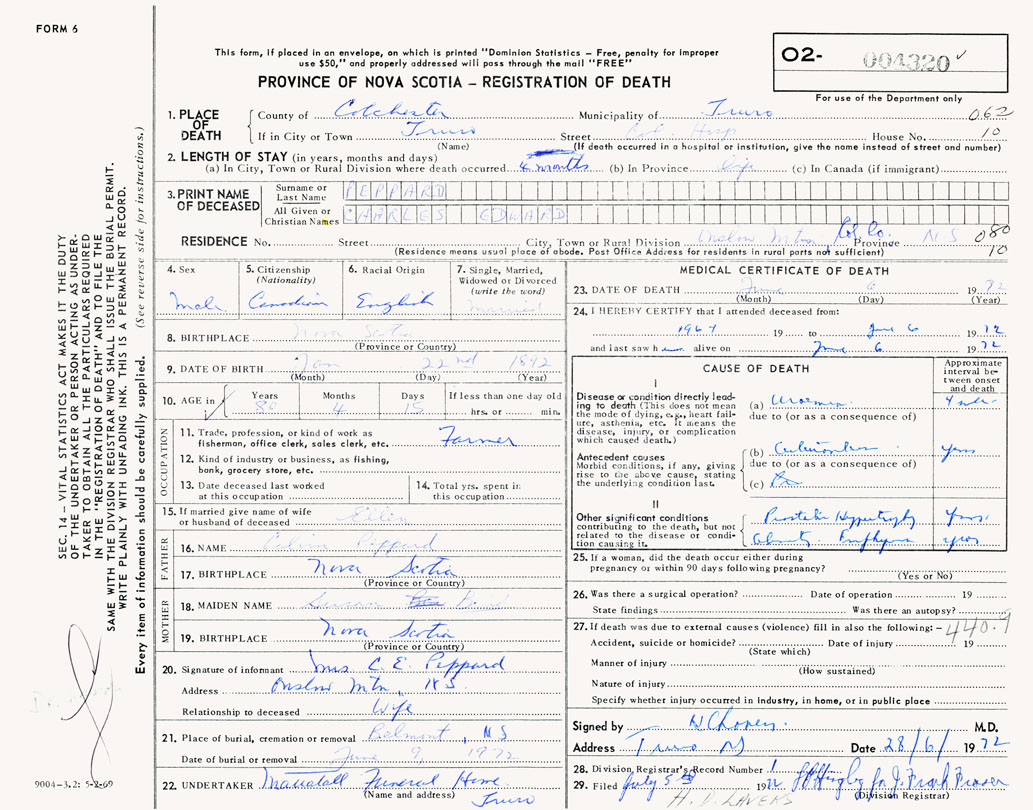 FORM 6
This form, if placed in an envelope, on which is printed "Dominion Statistics – Free, penalty for improper
use $50," and properly addressed will pass through the mail "FREE"
PROVINCE OF NOVA SCOTIA – REGISTRATION OF DEATH
O2- 004320
For use of the Department only
1. PLACE OF DEATH
County of Colchester Municipality of Truro 062
If in City or Town Truro Street Col. Hosp House No. 10
(Name) (If death occurred in a hospital or institution, give the name instead of street and number)
2. LENGTH OF STAY (in years, months and days)
(a) In City, Town or Rural Division where death occurred 4 months (b) In Province life (c) In Canada (if immigrant)
3. PRINT NAME OF DECEASED
Surname or Last Name PEPPARD
All Given or Christian Names CHARLES EDWARD
RESIDENCE No. Street City, Town or Rural Division Onslow Mtn Col. Co. Province N S 080
(Residence means usual place of abode. Post Office Address for residents in rural parts not sufficient) 10
4. Sex Male
5. Citizenship (Nationality) Canadian
6. Racial Origin English
7. Single, Married, Widowed or Divorced (write the word) Married
8. BIRTHPLACE Nova Scotia
(Province or Country)
9. DATE OF BIRTH Jan 22nd 1892
(Month) (Day) (Year)
10. AGE in Years 80 Months 4 Days 15 If less than one day old
hrs. or min.
OCCUPATION
11. Trade, profession, or kind of work as
fisherman, office clerk, sales clerk, etc. Farmer
12. Kind of industry or business, as fishing,
bank, grocery store, etc.
13. Date deceased last worked
at this occupation
14. Total yrs. spent in
this occupation
15. If married give name of wife
or husband of deceased Ellen
FATHER
16. NAME Peppard
17. BIRTHPLACE Nova Scotia
(Province or Country)
MOTHER
18. MAIDEN NAME Susan
19. BIRTHPLACE Nova Scotia
(Province or Country)
20. Signature of informant Mrs C. E. Peppard
Address Onslow Mtn, N S
Relationship to deceased Wife
21. Place of burial, cremation or removal Belmont, N S
Date of burial or removal June 9, 1972
22. UNDERTAKER Funeral Home
(Name and address) Truro
MEDICAL CERTIFICATE OF DEATH
23. DATE OF DEATH June 6 1972
(Month) (Day) (Year)
24. I HEREBY CERTIFY that I attended deceased from:
1967 19 to June 6 1972
and last saw h alive on June 6 1972
CAUSE OF DEATH
Approximate interval between onset and death
I
Disease or condition directly leading to death (This does not mean the mode of dying, e.g., heart failure, asthenia, etc. It means the disease, injury, or complication which caused death.)
(a) Uraemia
due to (or as a consequence of)
Antecedent causes
Morbid conditions, if any, giving rise to the above cause, stating the underlying condition last.
(b) years
due to (or as a consequence of)
(c)
II
Other significant conditions
contributing to the death, but not related to the disease or condition causing it.
Prostatic Hypertrophy years
Emphysema years
25. If a woman, did the death occur either during
pregnancy or within 90 days following pregnancy?
(Yes or No)
26. Was there a surgical operation? Date of operation 19
State findings Was there an autopsy?
27. If death was due to external causes (violence) fill in also the following: – 440.9
Accident, suicide or homicide? Date of injury 19
(State which)
Manner of injury
(How sustained)
Nature of injury
Specify whether injury occurred in industry, in home, or in public place
Signed by M.D.
Address Truro NS Date 28/6/ 1972
28. Division Registrar's Record Number
29. Filed July 5th 19 for J. Frank Fraser
(Division Registrar)
H. D. LAVERS
SEC. 14 – VITAL STATISTICS ACT MAKES IT THE DUTY
OF THE UNDERTAKER OR PERSON ACTING AS UNDER-
TAKER TO OBTAIN ALL THE PARTICULARS REQUIRED
IN THE "REGISTRATION OF DEATH" AND TO FILE THE
SAME WITH THE DIVISION REGISTRAR WHO SHALL ISSUE THE BURIAL PERMIT.
WRITE PLAINLY WITH UNFADING INK. THIS IS A PERMANENT RECORD.
Every item of information should be carefully supplied. (See reverse side for instructions.)
9004-3.2: 5-2-69